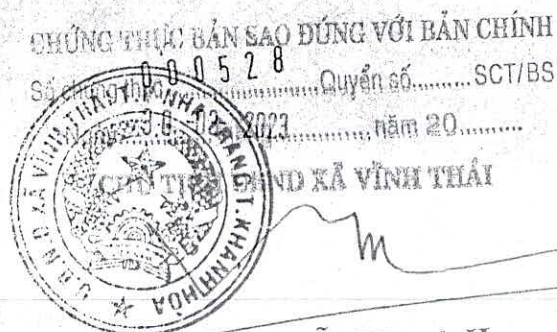 CHỨNG THỰC BẢN SAO ĐÚNG VỚI BẢN CHÍNH
Số chứng thực 000528 Quyển số.......... SCT/BS
2023 năm 20..........
CHỦ TỊCH UBND XÃ VĨNH THÁI
U.B.N.D XÃ VĨNH THÁI T.P NHA TRANG T. KHÁNH HÒA